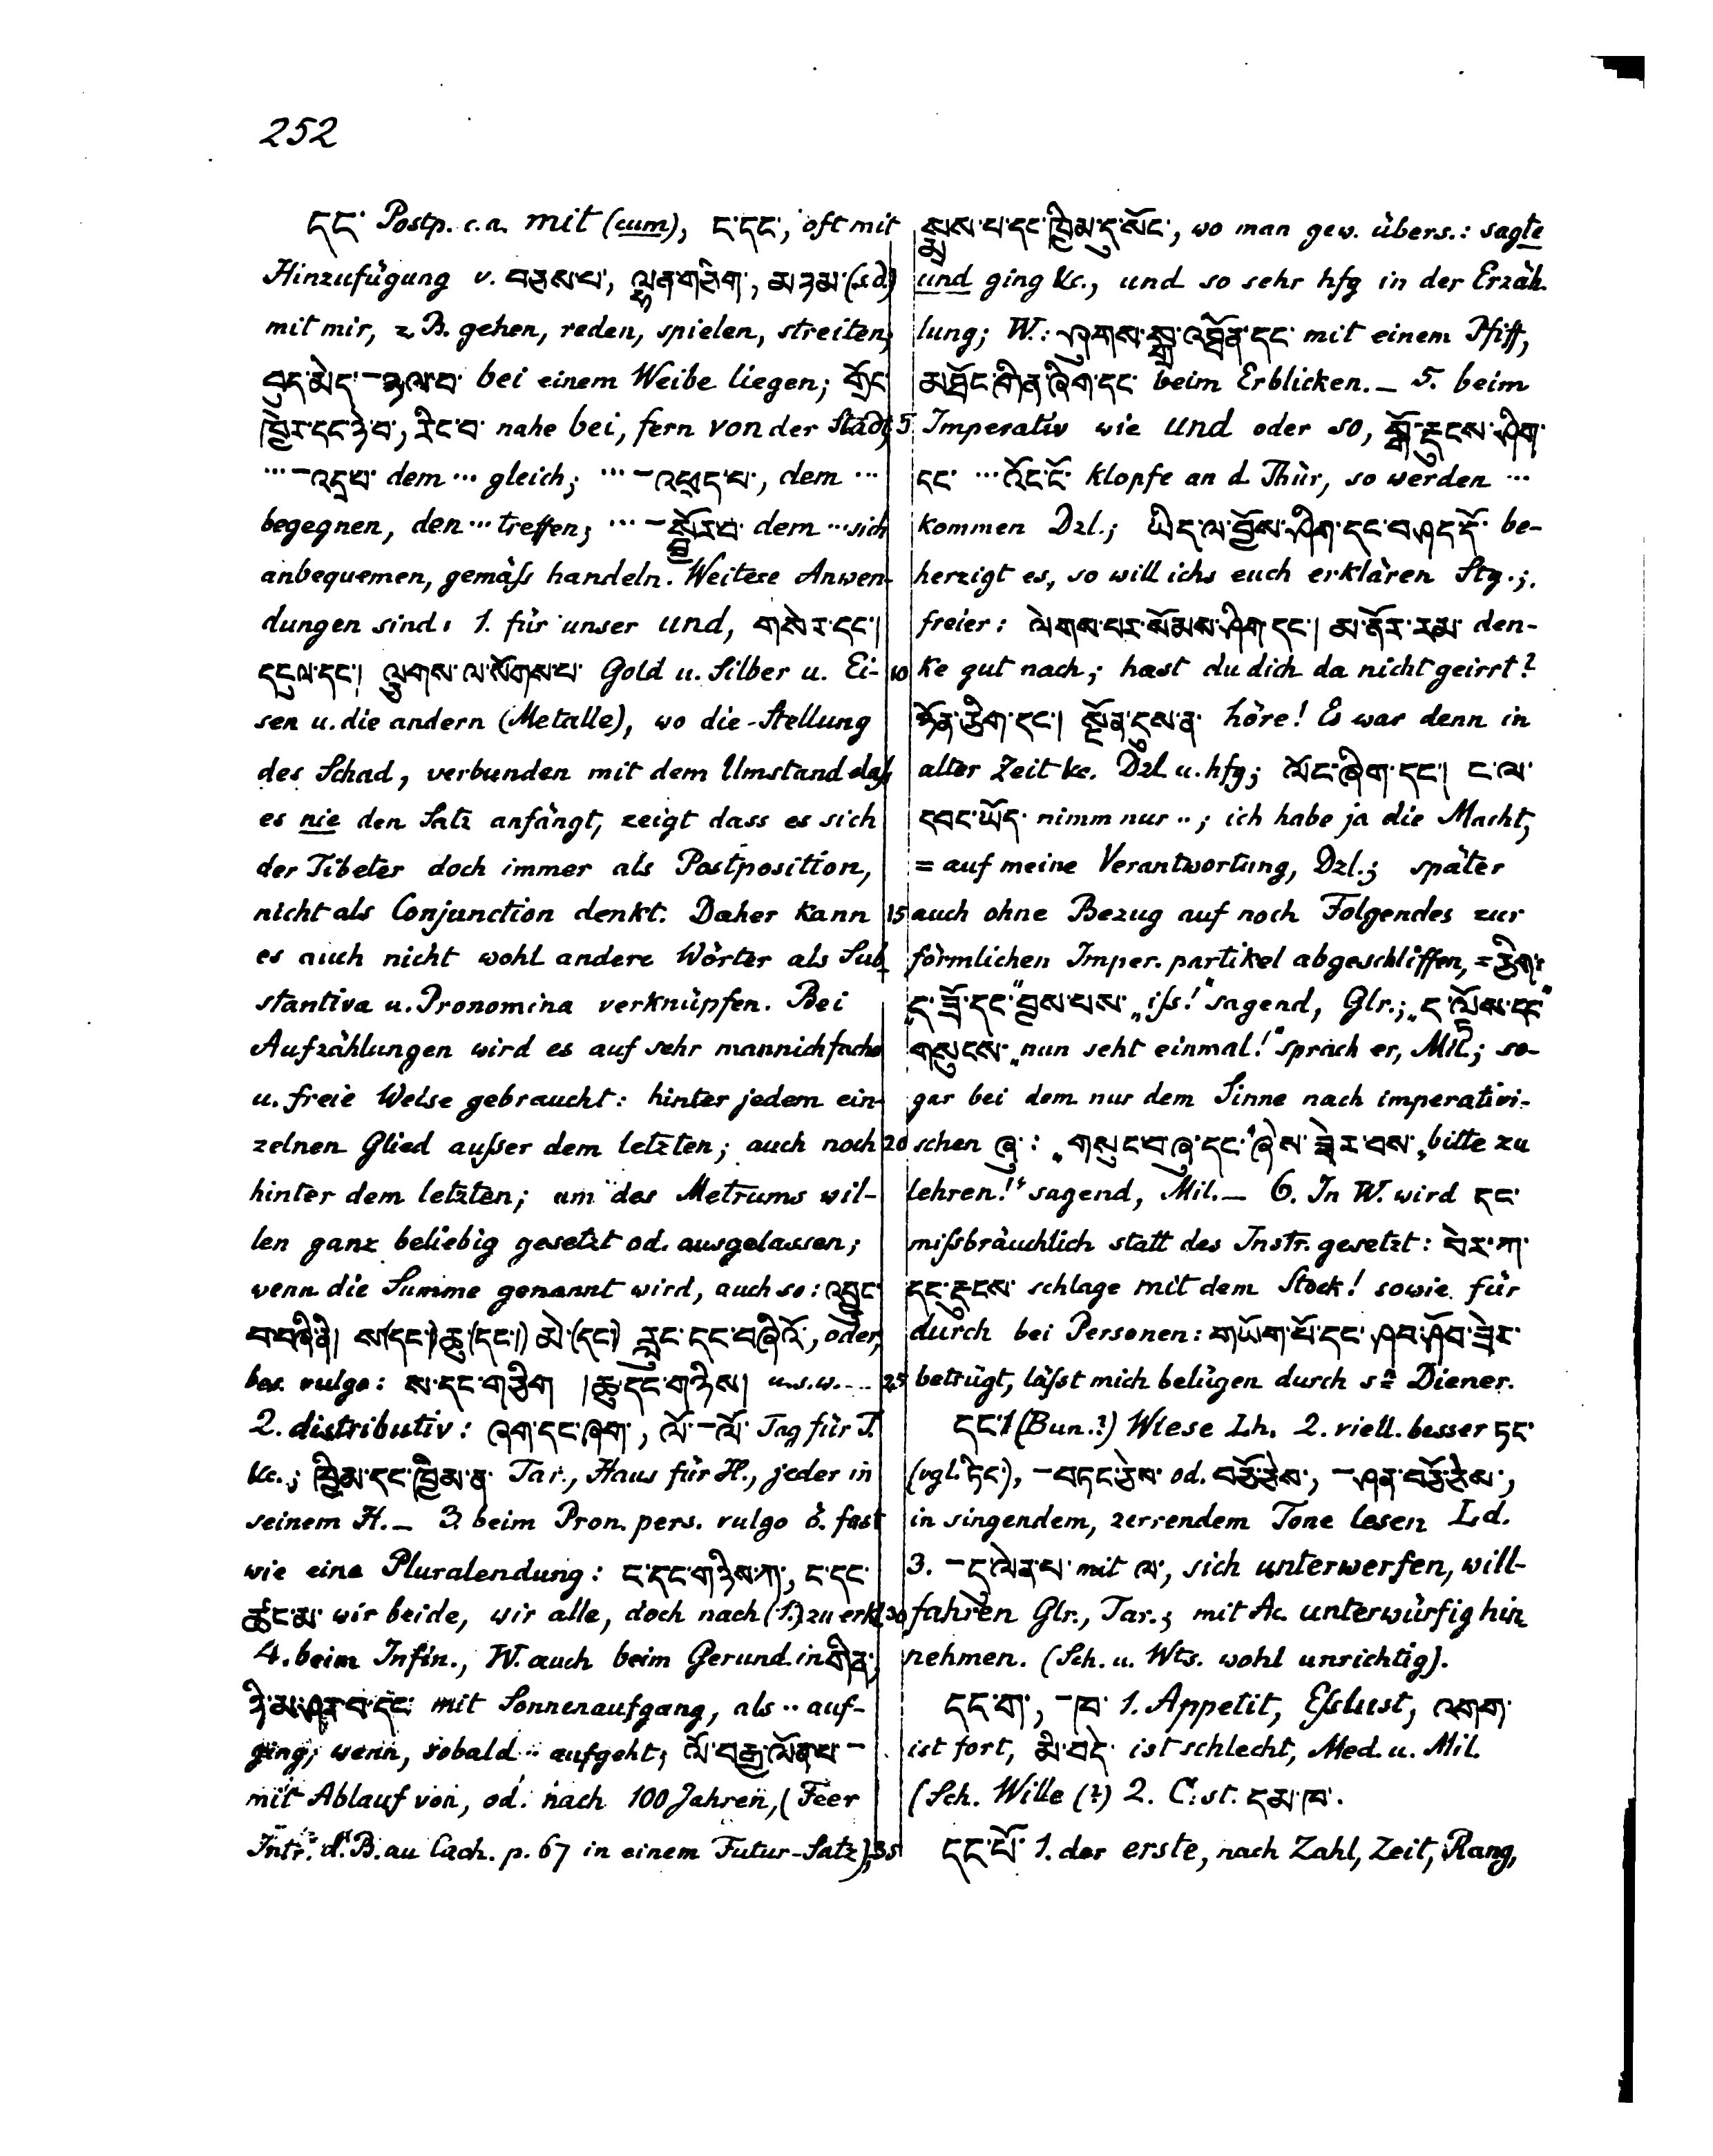 252
དང་ Postp. c.a. mit (cum), ང་དང་, oft mit
Hinzufügung v. བཅས་པ་, ལྷན་གཅིག་, མཉམ་ (s.d.)
mit mir, z.B. gehen, reden, spielen, streiten;
བུད་མེད་–ཉལ་བ་ bei einem Weibe liegen; གྲོང་
ཁྱེར་དང་ཉེ་བ་, རིང་བ་ nahe bei, fern von der Stadt,
···–འདྲ་བ་ dem ··· gleich; ···–འཕྲད་པ་, dem ···
begegnen, den ··· treffen; ···–སྦྱོར་བ་ dem ··· sich
anbequemen, gemäſs handeln. Weitere Anwen-
dungen sind: 1. für unser und, གསེར་དང་།
དངུལ་དང་། ལྕགས་ལ་སོགས་པ་ Gold u. Silber u. Ei-
sen u. die andern (Metalle), wo die Stellung
des Schad, verbunden mit dem Umstand daſs
es nie den Satz anfängt, zeigt dass es sich
der Tibeter doch immer als Postposition,
nicht als Conjunction denkt. Daher kann
es auch nicht wohl andere Wörter als Sub-
stantiva u. Pronomina verknüpfen. Bei
Aufzählungen wird es auf sehr mannichfache
u. freie Weise gebraucht: hinter jedem ein-
zelnen Glied auſser dem letzten; auch noch
hinter dem letzten; um des Metrums wil-
len ganz beliebig gesetzt od. ausgelassen;
wenn die Summe genannt wird, auch so: འབྱུང་
བ་བཞི་ནི། ས་(དང་།) ཆུ་(དང་།) མེ་(དང་།) རླུང་དང་བཞིའོ་, oder,
bes. vulgo: ས་དང་གཅིག །ཆུ་དང་གཉིས། u.s.w. –
2. distributiv: ཞག་དང་ཞག་, ལོ་–ལོ་ Tag für T.
&c.; ཁྱིམ་དང་ཁྱིམ་ན་ Tar., Haus für H., jeder in
seinem H. – 3. beim Pron. pers. vulgo ö. fast
wie eine Pluralendung: ང་དང་གཉིས་ཀ་, ང་དང་
ཚང་མ་ wir beide, wir alle, doch nach (1.) zu erkl.
4. beim Infin., W. auch beim Gerund. in གིན་,
ཉི་མ་ཤར་བ་དང་ mit Sonnenaufgang, als ·· auf-
ging; wenn, sobald ·· aufgeht; ལོ་བརྒྱ་ལོན་པ་–
mit Ablauf von, od. nach 100 Jahren, (Feer
Intr. d. B. au Cach. p. 67 in einem Futur-Satz);
སྨྲས་པ་དང་ཁྱིམ་དུ་སོང་, wo man gew. übers.: sagte
und ging &c., und so sehr hfg in der Erzäh-
lung; W.: ཤུགས་སྒྲ་འཐོན་དང་ mit einem Pfiff,
མཐོང་གིན་ཞིག་དང་ beim Erblicken. – 5. beim
5 Imperativ wie und oder so, སྒོ་རྡུངས་ཤིག་
དང་ ··· འོང་ངོ་ klopfe an d. Thür, so werden ···
kommen Dzl.; ཡིད་ལ་བྱོས་ཤིག་དང་བཤད་དོ་ be-
herzigt es, so will ichs euch erklären Stg.;
freier: ལེགས་པར་སོམས་ཤིག་དང་། མ་ནོར་རམ་ den-
10 ke gut nach; hast du dich da nicht geirrt?
ཉོན་ཅིག་དང་། སྔོན་དུས་ན་ höre! Es war denn in
alter Zeit &c. Dzl u. hfg; ལོང་ཞིག་དང་། ང་ལ་
དབང་ཡོད་ nimm nur ··; ich habe ja die Macht,
= auf meine Verantwortung, Dzl.; später
15 auch ohne Bezug auf noch Folgendes zur
förmlichen Imper. partikel abgeschliffen, = ཅིག་:
„ད་ཟོ་དང་” བྱས་པས་ „iſs!” sagend, Glr.; „ད་ལྟོས་དང་”
གསུངས་ „nun seht einmal!” sprach er, Mil; so-
gar bei dem nur dem Sinne nach imperativi-
20 schen ཞུ་: „གསུང་བ་ཞུ་དང་” ཞེས་ཟེར་བས་ „bitte zu
lehren!” sagend, Mil. – 6. In W. wird དང་
miſsbräuchlich statt des Instr. gesetzt: བེར་ཀ་
དང་རྡུངས་ schlage mit dem Stock! sowie für
durch bei Personen: གཡོག་པོ་དང་ཤབ་ཤོབ་ཟེར་
25 betrügt, läſst mich belügen durch sn Diener.
དང་ 1 (Bun.?) Wiese Lh. 2. viell. besser ཏང་
(vgl. ཏིང་), –བཏང་ཅེས་ od. བཅོ་ཅེས་, –ཤན་བཅོ་ཅེས་,
in singendem, zerrendem Tone lesen Ld.
3. –དུ་ལེན་པ་ mit ལ་, sich unterwerfen, will-
30 fahren Glr., Tar.; mit Ac. unterwürfig hin
nehmen. (Sch. u. Wts. wohl unrichtig).
དང་ག་, –ཁ་ 1. Appetit, Eſslust, འགག་
ist fort, མི་བདེ་ ist schlecht, Med. u. Mil.
(Sch. Wille (?) 2. C: st. དམ་ཁ་.
35 དང་པོ་ 1. der erste, nach Zahl, Zeit, Rang,